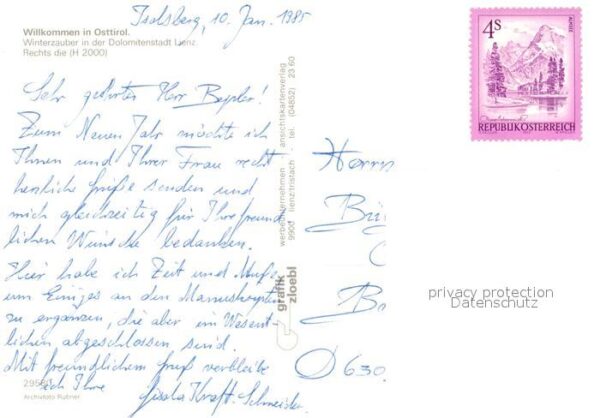 Iselsberg, 10. Jan. 1985
Willkommen in Osttirol.
Winterzauber in der Dolomitenstadt Lienz.
Rechts die (H 2000)
Sehr geehrter Herr Bepler!
Zum Neuen Jahr möchte ich
Ihnen und Ihrer Frau recht
herzliche Grüße senden und
mich gleichzeitig für Ihre freund
lichen Wünsche bedanken.
Hier habe ich Zeit und Muße
um Einiges an den Manuskripten
zu ergänzen, die aber im Wesent
lichen abgeschlossen sind.
Mit freundlichem Gruß verbleibe
ich Ihre Gisela Kraft-Schneider
Archivfoto Rubner
werbeunternehmen · ansichtskartenverlag
9900 lienz/tristach · tel. (04852) 23 60
grafik
zloebl
4s
ALMSEE
REPUBLIK ÖSTERREICH
Herrn
Bü
Ba
D 630
privacy protection
Datenschutz